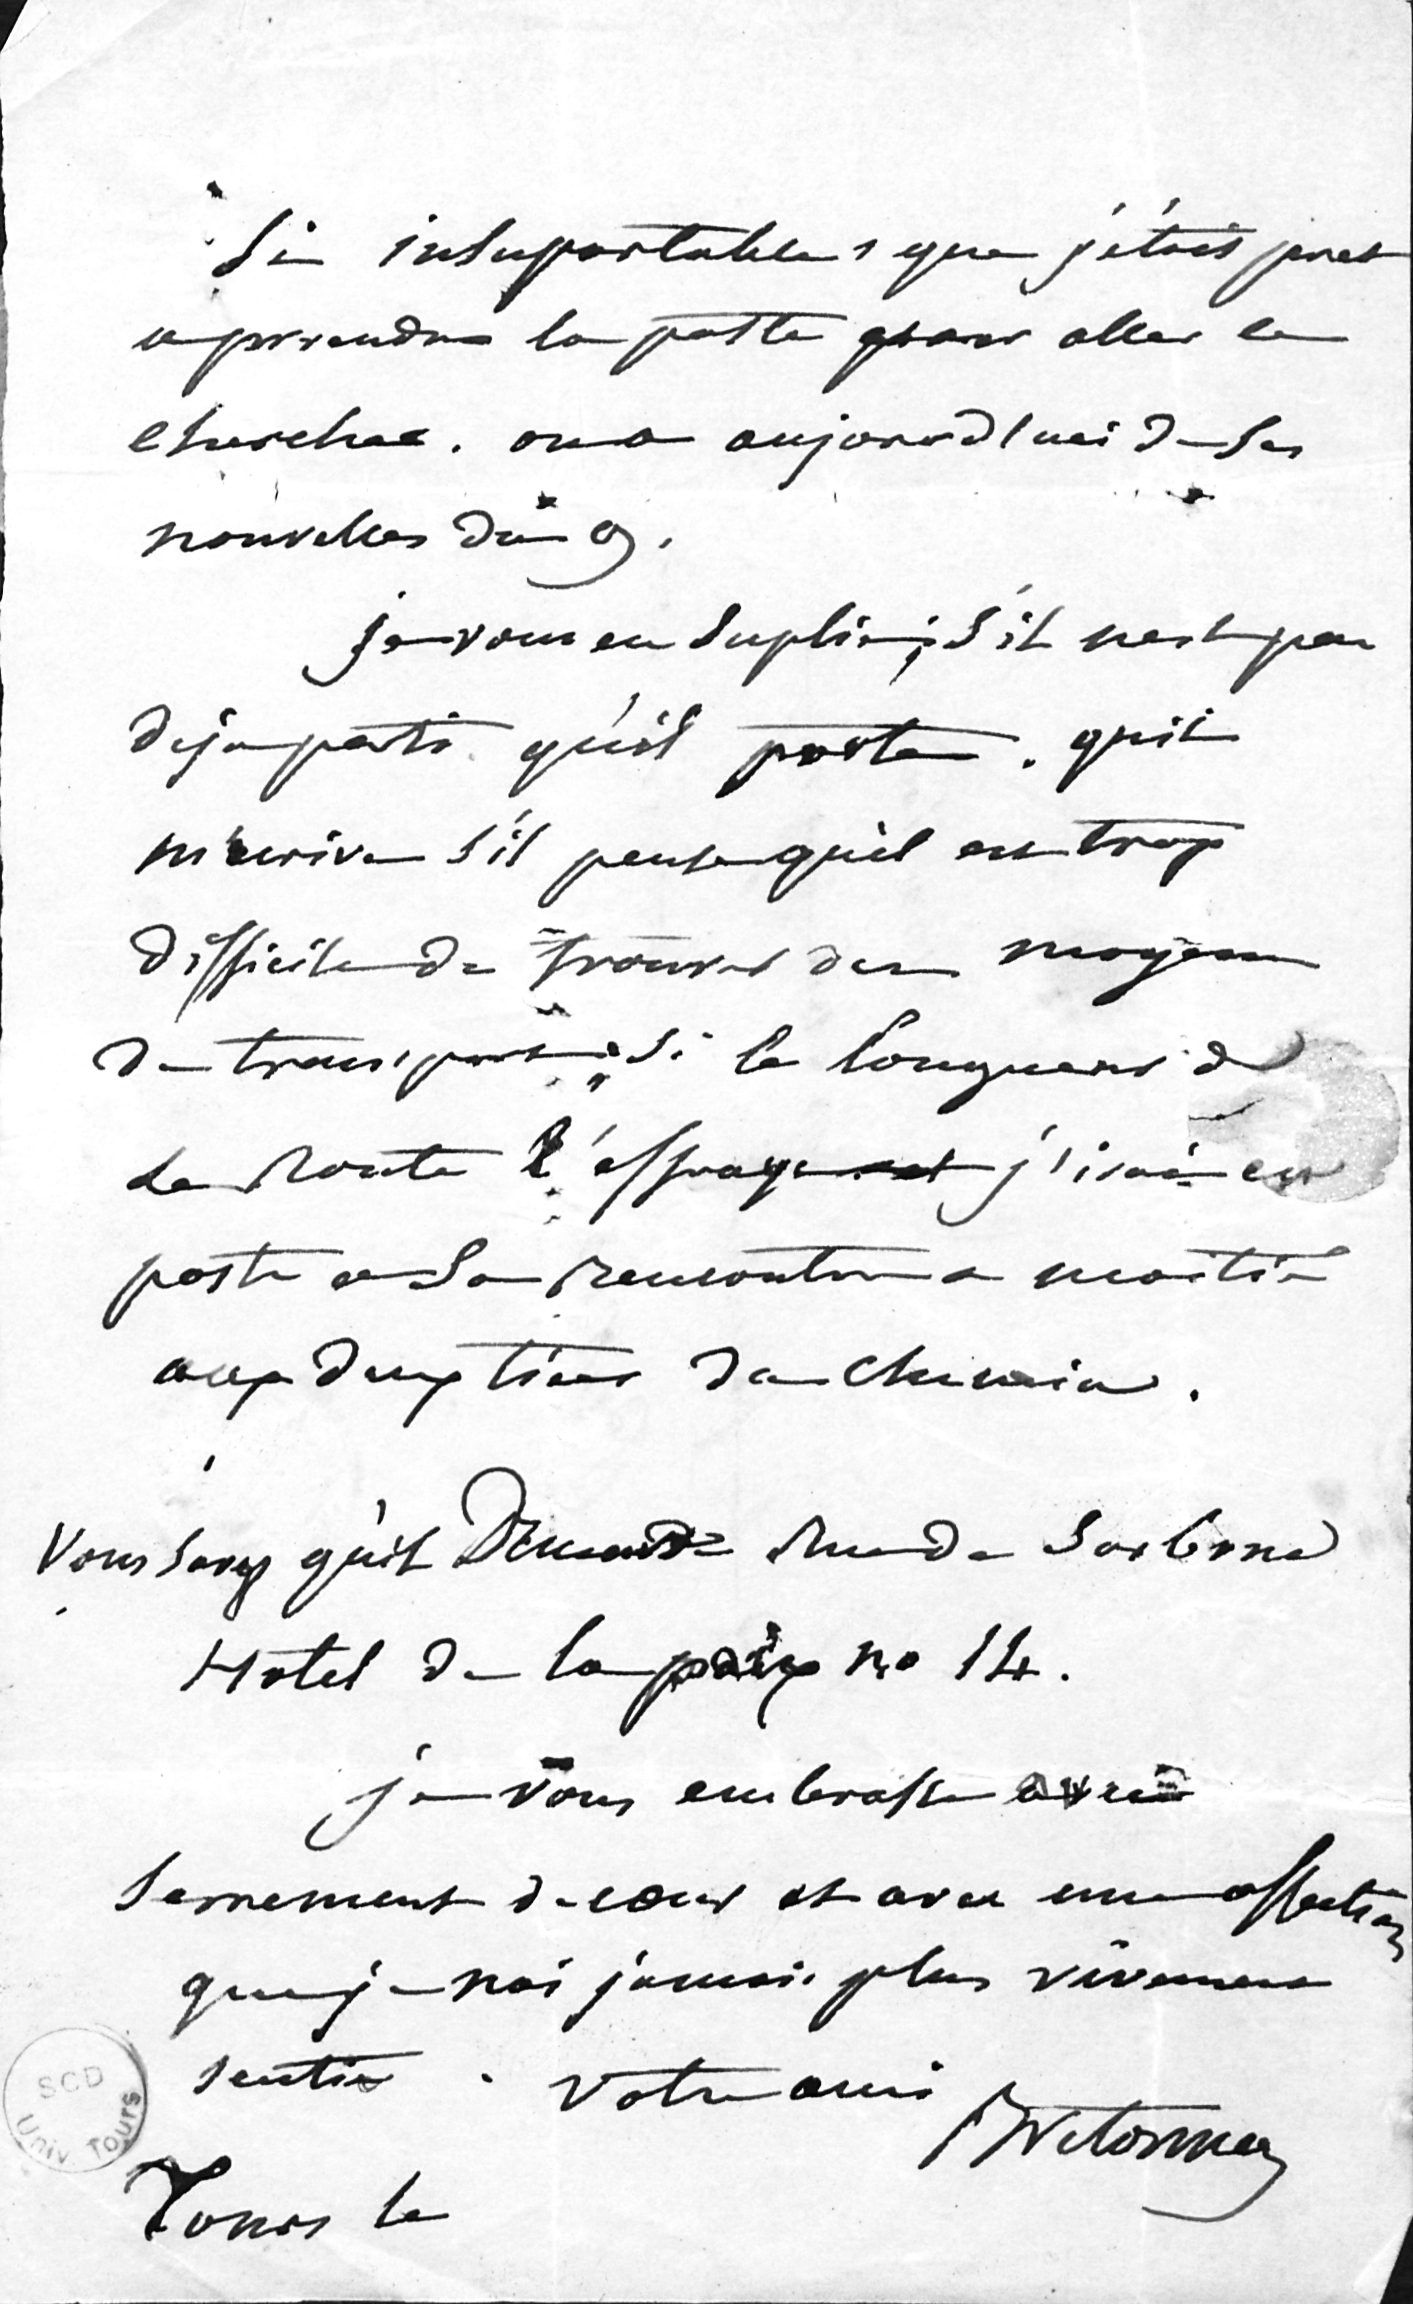 si insuportable, que j'étois pret
a prendre la poste pour aller le
chercher. on a aujourd'hui de ses
nouvelles du 9.
je vous en suplie, s'il nest pas
deja parti qu'il parte. quil
m'ecrive s'il pense qu'il est trop
difficile de trouver des moyens
de transport, si la longueur de
la route l'effraye j'irai en
poste a sa rencontre a moitié
aux deux tiers du chemin.
Vous savez qu'il demeure rue de Sorbone
Hotel de la paix no 14.
je vous embrasse avec
serrement de cœur et avec une affection
que je nai jamais plus vivement
sentie. votre ami
Bretonneau
Tours le
SCD
Univ. Tours